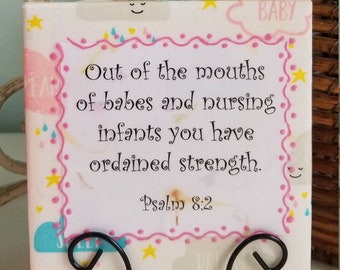 BABY
Out of the mouths
of babes and nursing
infants you have
ordained strength.
Psalm 8:2